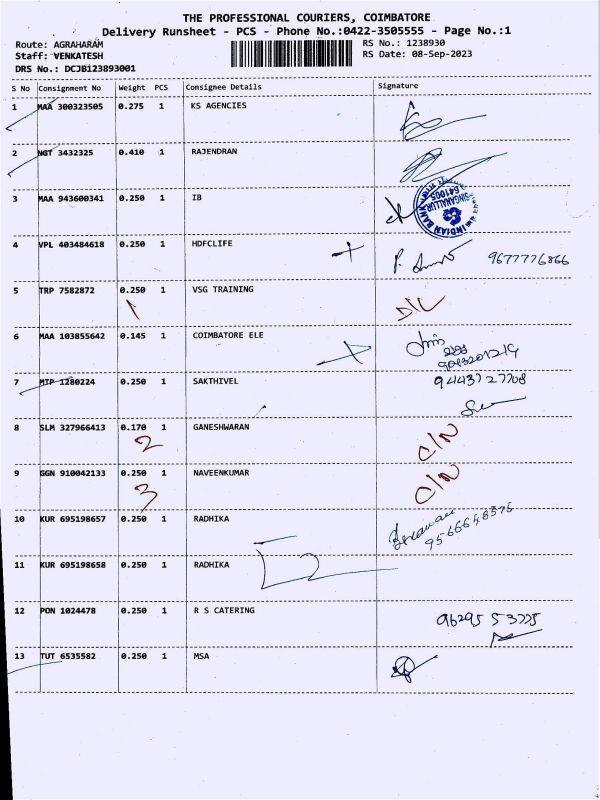 THE PROFESSIONAL COURIERS, COIMBATORE
Delivery Runsheet - PCS - Phone No.:0422-3505555 - Page No.:1
Route: AGRAHARAM
Staff: VENKATESH
DRS No.: DCJB123893001
RS No.: 1238930
RS Date: 08-Sep-2023
S No Consignment No Weight PCS Consignee Details Signature
1 MAA 300323505 0.275 1 KS AGENCIES
2 NGT 3432325 0.410 1 RAJENDRAN
3 MAA 943600341 0.250 1 IB
INDIAN BANK
SINGANALLUR
641005
4 VPL 403484618 0.250 1 HDFCLIFE 9677776866
5 TRP 7582872 0.250 1 VSG TRAINING D/L
1
6 MAA 103855642 0.145 1 COIMBATORE ELE
7 MTP 1280224 0.250 1 SAKTHIVEL 9443727708
8 SLM 327966413 0.170 1 GANESHWARAN C/N
2
9 GGN 910042133 0.250 1 NAVEENKUMAR C/N
3
10 KUR 695198657 0.250 1 RADHIKA
9566648375
11 KUR 695198658 0.250 1 RADHIKA
12 PON 1024478 0.250 1 R S CATERING
96295 53775
13 TUT 6535582 0.250 1 MSA